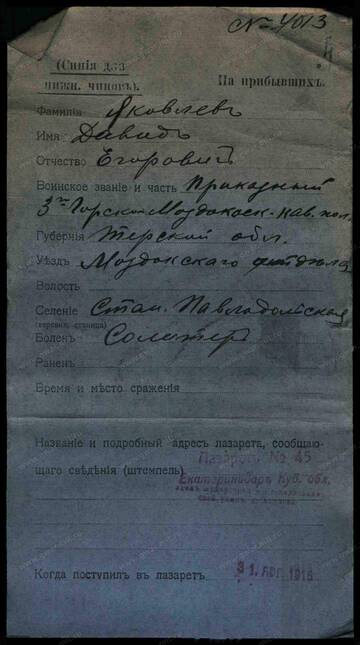 № 4013
(Синія для
нижн. чиновъ).
На прибывшихъ.
Фамилія Яковлевъ
Имя Давидъ
Отчество Егоровичъ
Воинское званіе и часть Приказный
3го Горско-Моздокск. кав. пол.
Губернія Терской обл.
Уѣздъ Моздокскаго отдѣла
Волость
Селеніе Стан. Павлодольская
(деревня, станица)
Боленъ Солитеръ
Раненъ
Время и мѣсто сраженія
Названіе и подробный адресъ лазарета, сообщаю-
щаго свѣдѣнія (штемпель)
Лазаретъ № 45
Екатеринодаръ Куб. обл.
Когда поступилъ въ лазаретъ 31.